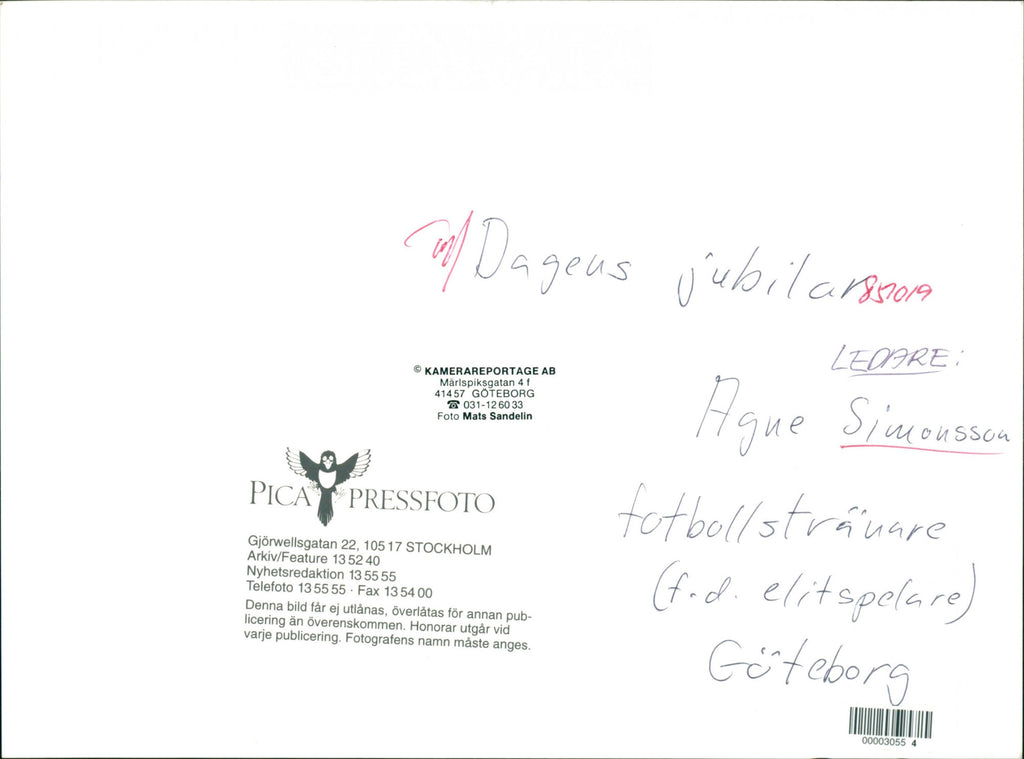 Dagens jubilar
851019
LEDARE:
Agne Simonsson
fotbollstränare
(f.d. elitspelare)
Göteborg
© KAMERAREPORTAGE AB
Märlspiksgatan 4 f
414 57 GÖTEBORG
☎ 031-12 60 33
Foto Mats Sandelin
PICA PRESSFOTO
Gjörwellsgatan 22, 105 17 STOCKHOLM
Arkiv/Feature 13 52 40
Nyhetsredaktion 13 55 55
Telefoto 13 55 55 · Fax 13 54 00
Denna bild får ej utlånas, överlåtas för annan pub-
licering än överenskommen. Honorar utgår vid
varje publicering. Fotografens namn måste anges.
00003055 4